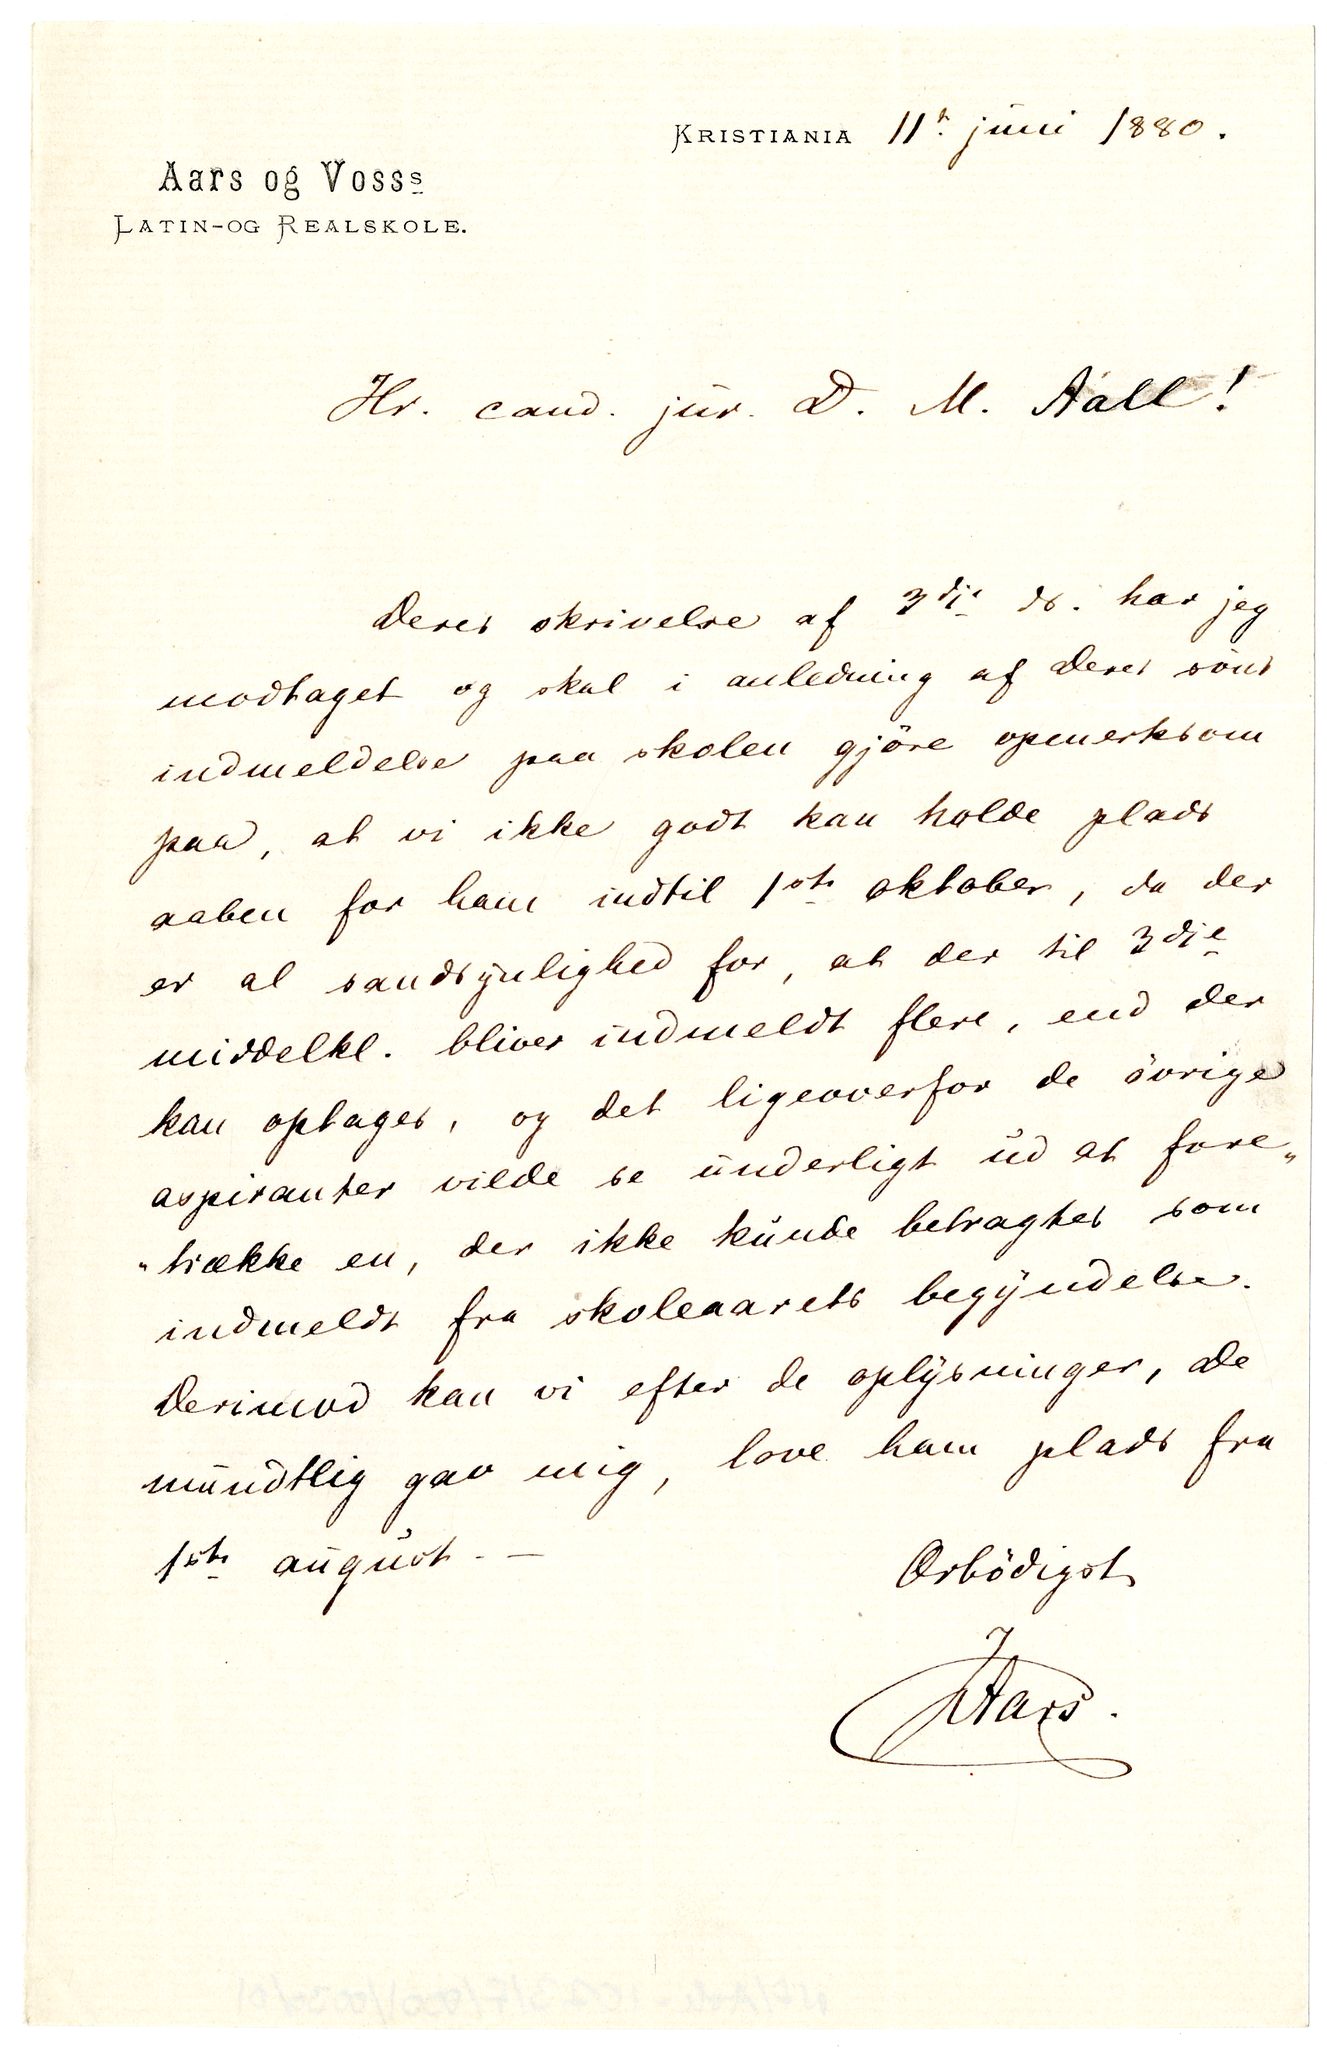 KRISTIANIA 11t juni 1880.
Aars og Vosss
LATIN-OG REALSKOLE.
Hr. cand. jur. D. M. Aall!
Deres skrivelse af 3dje ds. har jeg
modtaget og skal i anledning af Deres söns
indmeldelse paa skolen gjöre opmerksom
paa, at vi ikke godt kan holde plads
aaben for ham indtil 1ste oktober, da der
er al sandsynlighed for, at der til 3dje
middelkl. bliver indmeldt flere, end der
kan optages, og det ligeoverfor de övrige
aspiranter vilde se underligt ud at fore„
„trække en, der ikke kunde betragtes som
indmeldt fra skoleaarets begyndelse.
Derimod kan vi efter de oplysninger, De
mundtlig gav mig, love ham plads fra
1ste august. —
Ærbödigst
JAars.